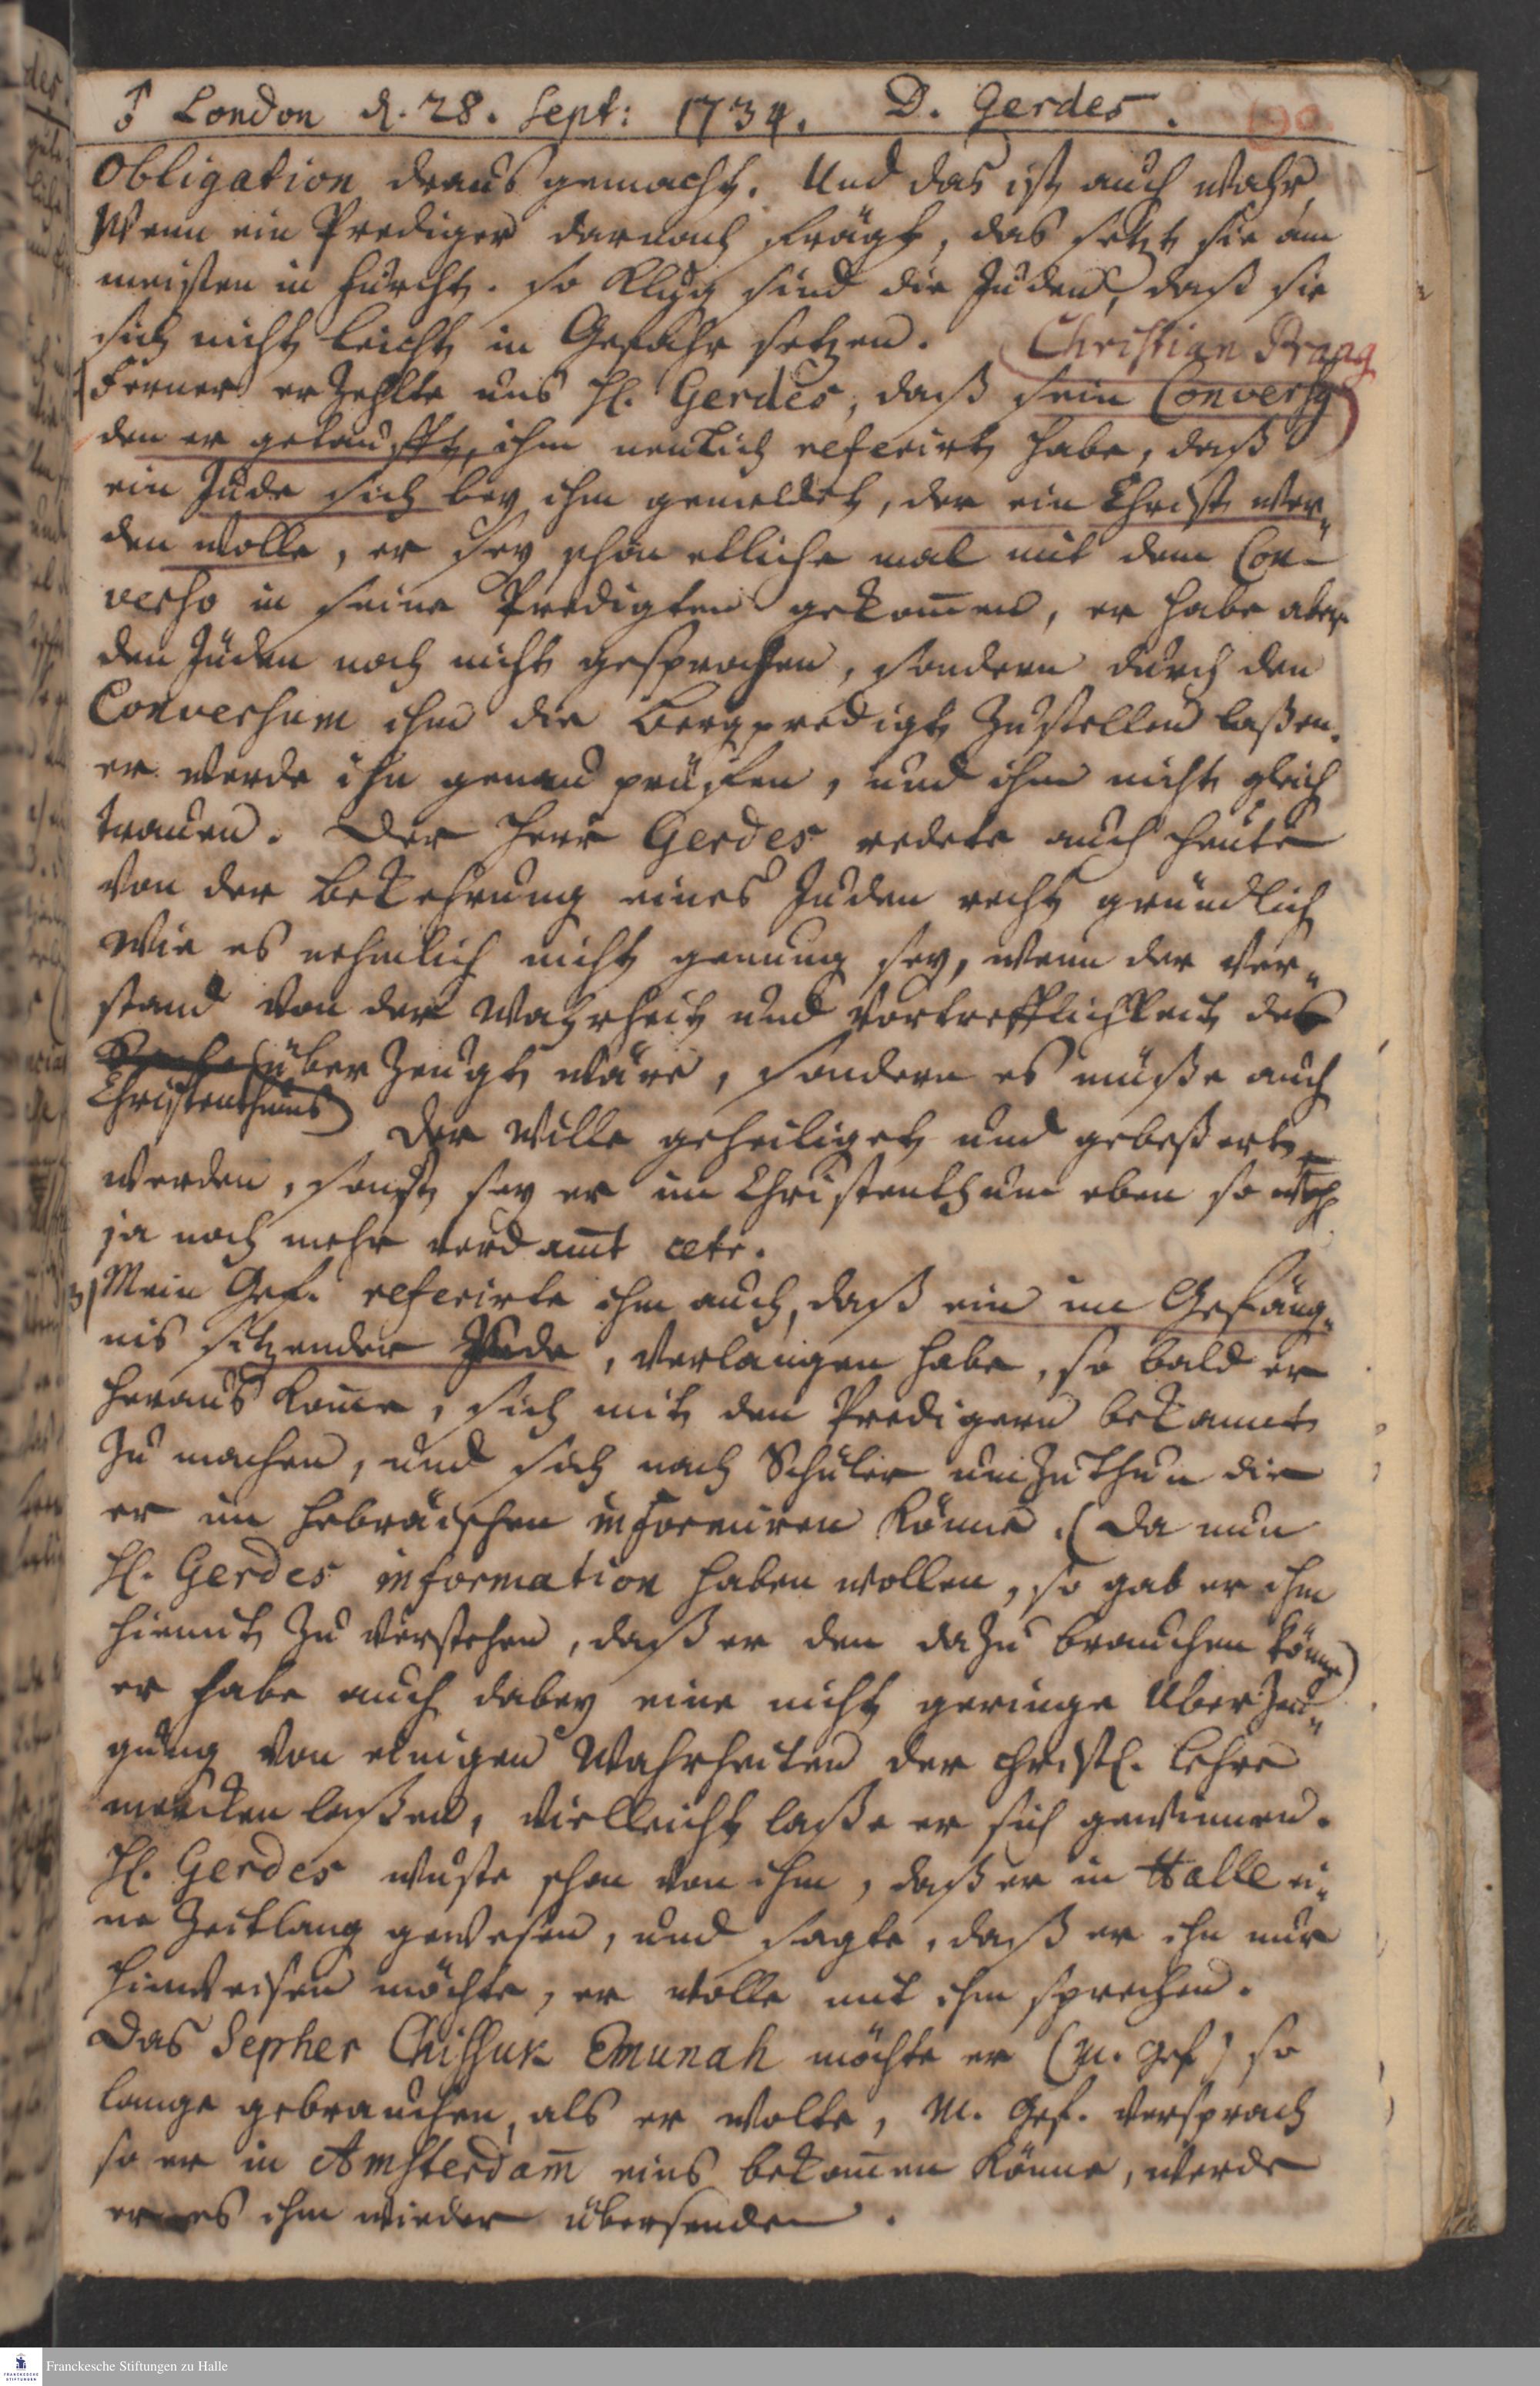 ♂ London d. 28. Sept: 1734. D. Gerdes.
Obligation draus gemacht. Und das ist auch wahr,
Wenn ein Prediger darnach frägt, das setzt sie am
meisten in furcht. so klug sind die Juden, daß sie
sich nicht leicht in Gefahr setzen. Christian Prang
Ferner erzehlte uns H. Gerdes, daß sein Conversq
den er getaufft, ihm neulich referirt habe, daß
ein Jude sich bey ihm gemeldet, der ein Christ wer„
den wolle, er sey schon etliche mal mit dem Con-
verso in seine Predigten gekom̅en, er habe aber
den Juden noch nicht gesprochen, sondern durch den
Conversum ihm die Bergpredigt zustellen laßen.
er werde ihn genau prüfen, und ihm nicht gleich
trauen. Der Herr Gerdes redete auch heute
von der Bekehrung eines Juden recht gründlich
Wie es nehmlich nicht genung sey, wenn der Ver„
stand von der Wahrheit und Vortrefflichkeit des
überzeugt wäre, sondern es müße auch
Christenthums)
der Wille geheiliget und gebeßert
werden, sonst sey er im Christenthum eben so
ja noch mehr verdam̅t etc.
3) Mein Gef. referirte ihm auch, daß ein im Gefäng„
nis sitzender Jude, verlangen habe, so bald er
heraus kom̅e, sich mit den Predigern bekannt
zu machen, und sich nach Schüler umzuthun die
er im hebräischen informiren könne. (Da nun
H. Gerdes information haben wollen, so gab er ihm
hiemit zu verstehen, daß er den dazu brauchen könne)
er habe auch dabey eine nicht geringe Uberzeu„
gung von einigen Wahrheiten der christl. Lehre
mercken laßen, vielleicht laße er sich gewinnen.
H. Gerdes wuste schon von ihm, daß er in Halle ei„
ne Zeitlang gewesen, und sagte, daß er ihn nur
hinweisen möchte, er wolle mit ihm sprechen.
Das Sepher Chissuk Emunah möchte er (M. Gef) so
lange gebrauchen, als er wolte, M. Gef. versprach
so er in Amsterdam̅ eins bekom̅en könne, werde
er es ihm wieder übersenden.
Franckesche Stiftungen zu Halle